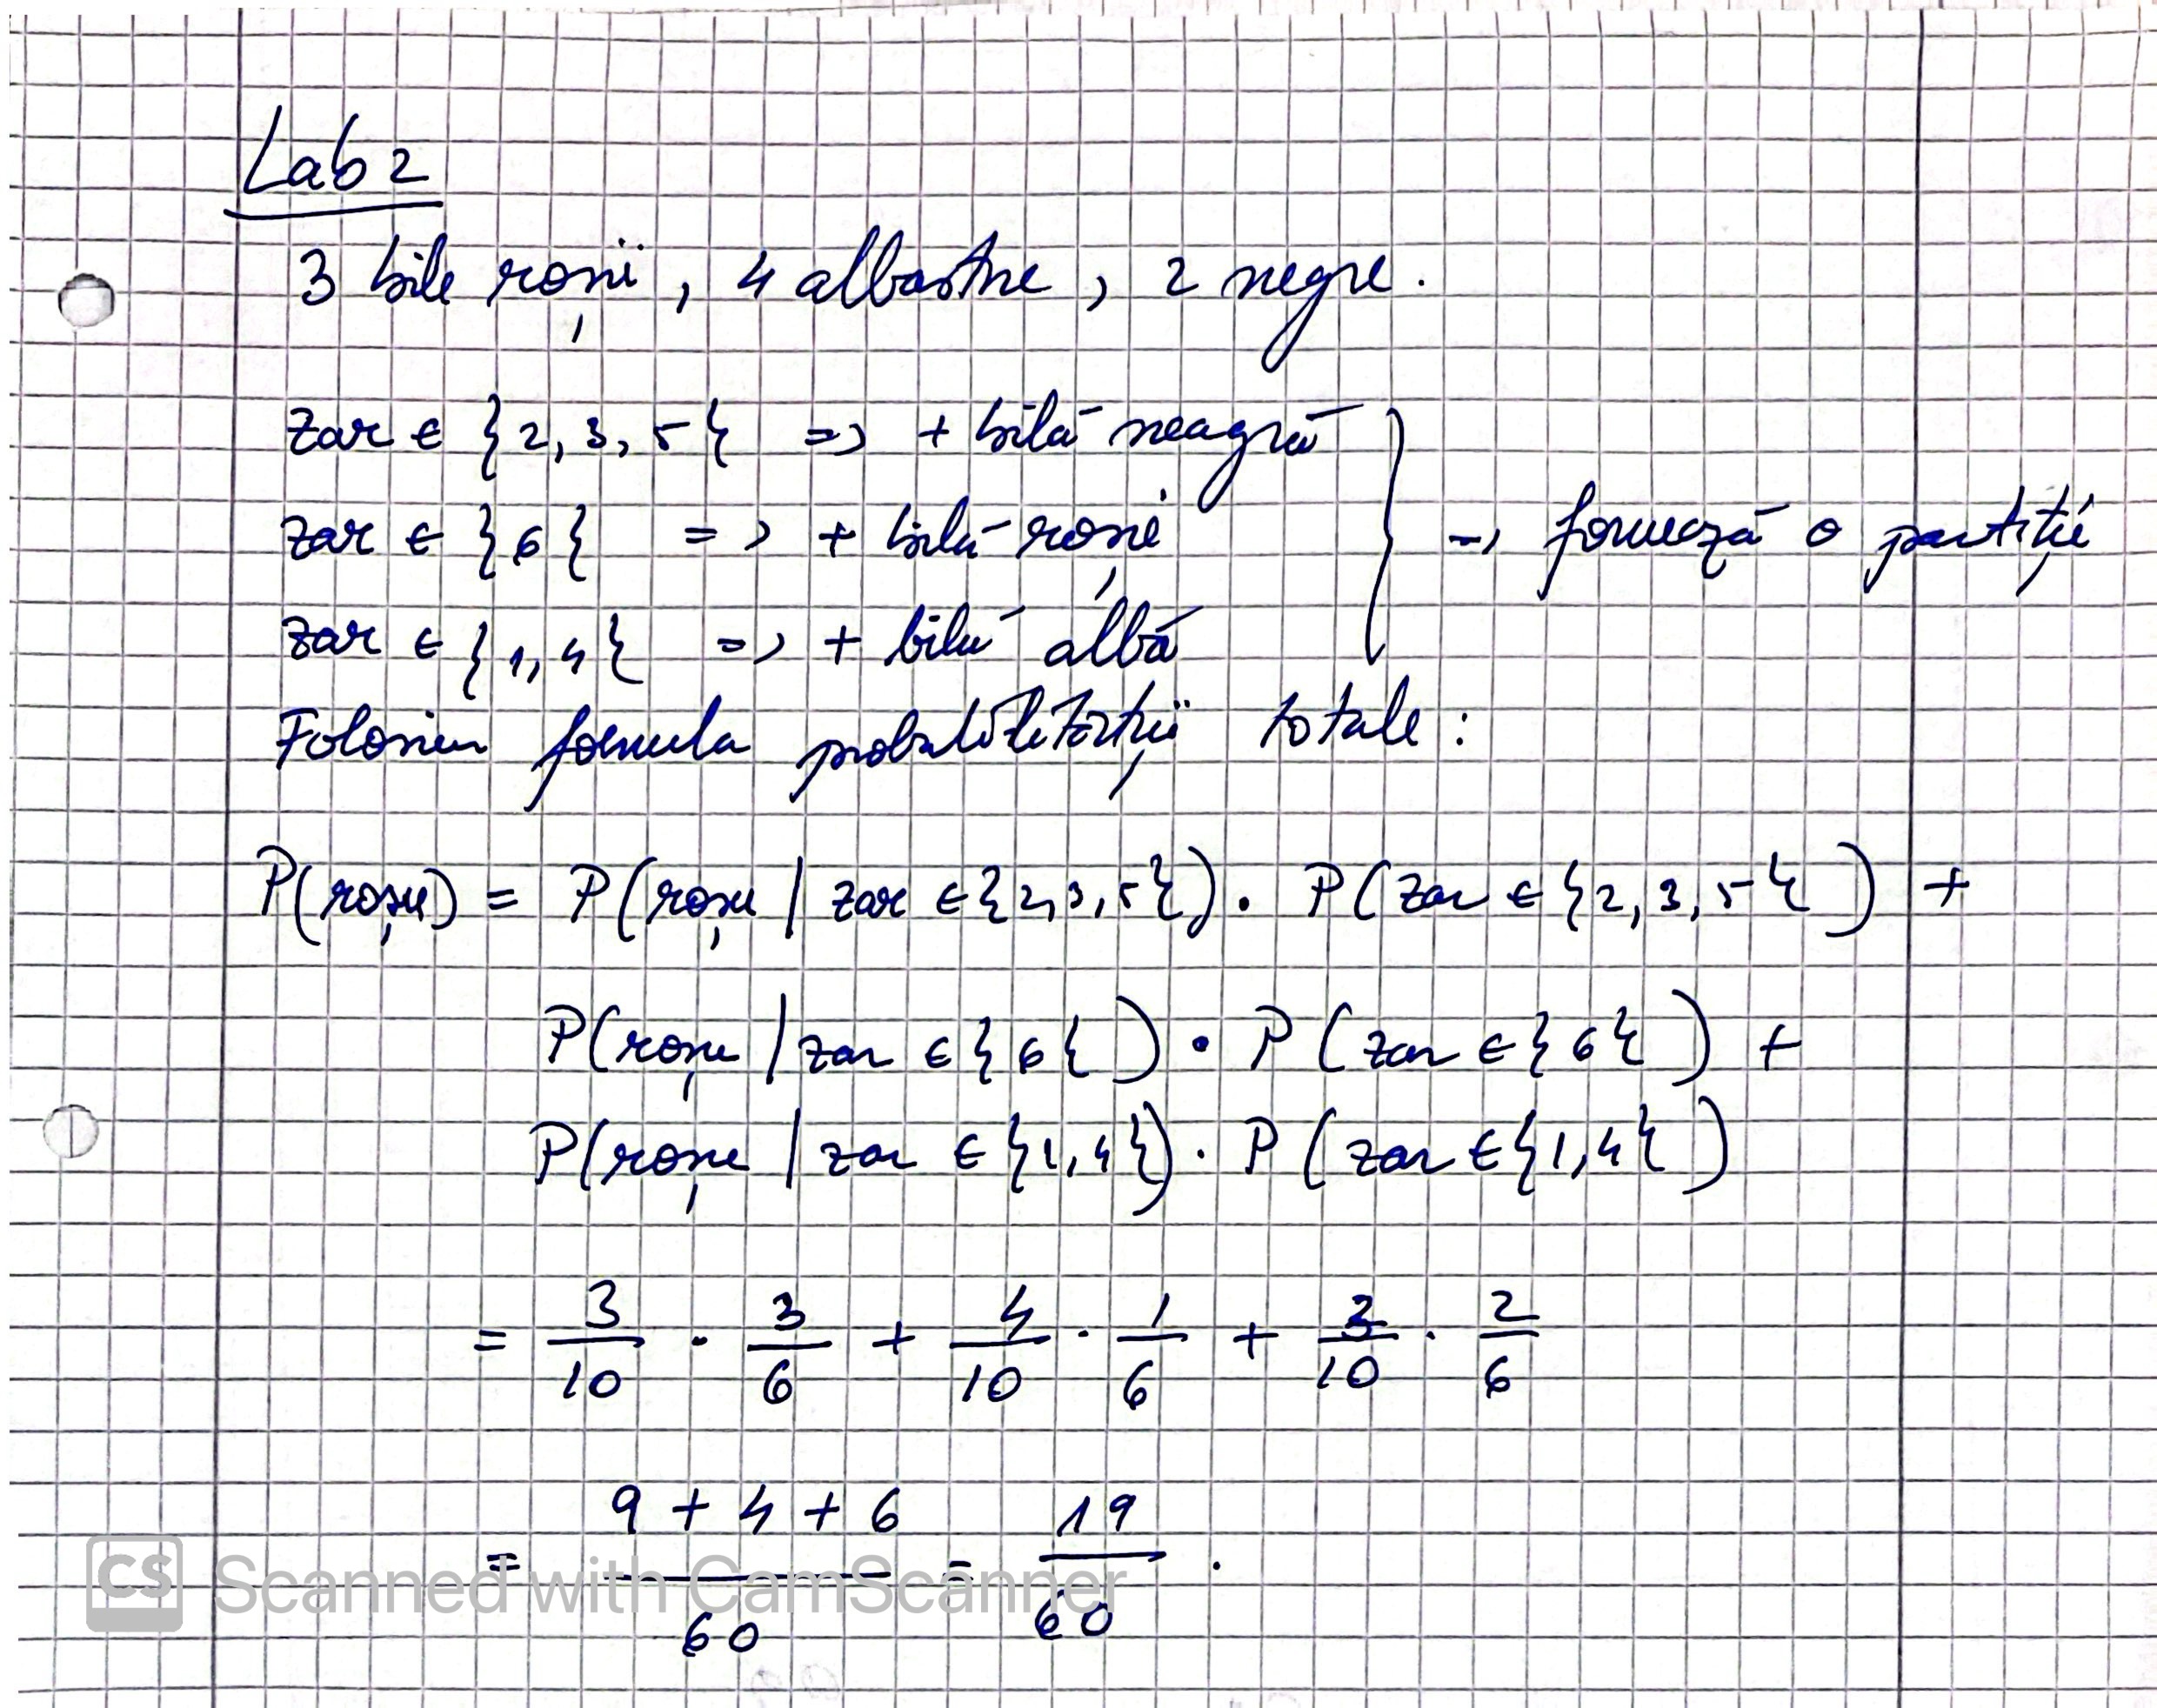 Lab 2
3 bile roșii, 4 albastre, 2 negre.
zar ∈ {2, 3, 5} => + bilă neagră
zar ∈ {6} => + bilă roșie -> formează o partiție
zar ∈ {1, 4} => + bilă albă
Folosim formula probabilității totale:
P(roșu) = P(roșu | zar ∈ {2, 3, 5}) · P(zar ∈ {2, 3, 5}) +
P(roșu | zar ∈ {6}) · P(zar ∈ {6}) +
P(roșu | zar ∈ {1, 4}) · P(zar ∈ {1, 4})
= 3/10 · 3/6 + 4/10 · 1/6 + 3/10 · 2/6
= (9 + 4 + 6)/60 = 19/60 .
CS Scanned with CamScanner